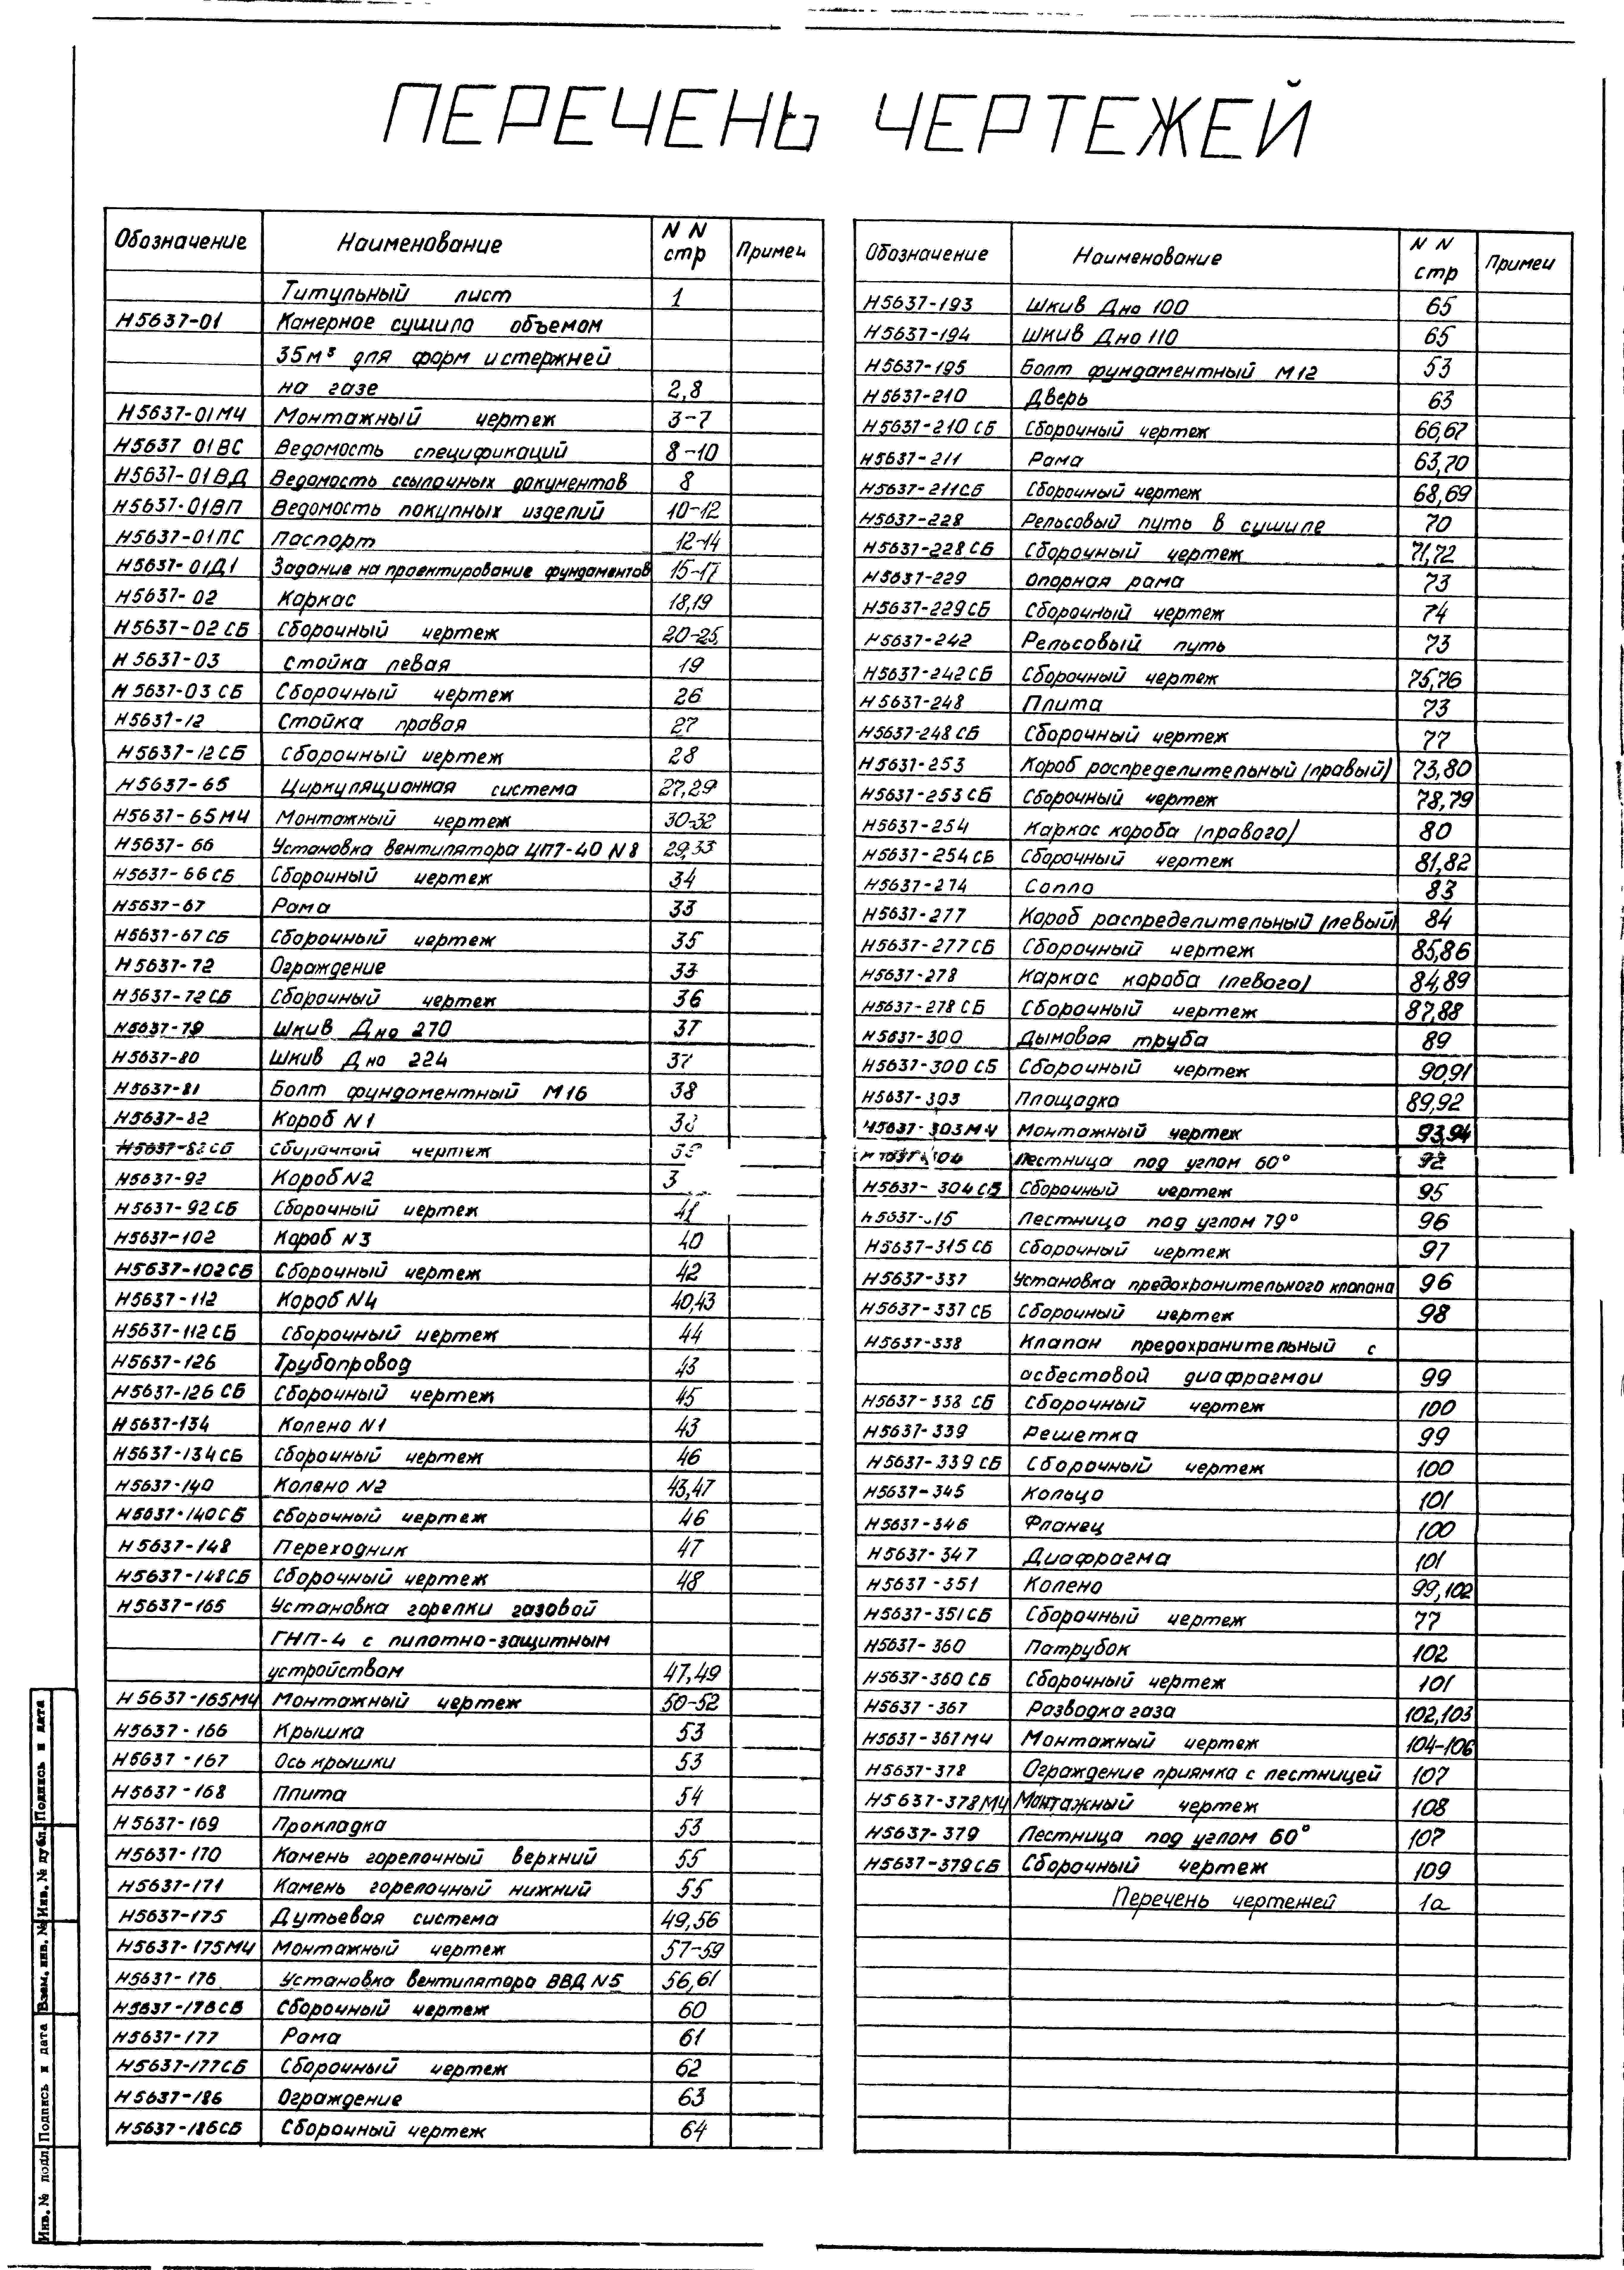 ПЕРЕЧЕНЬ ЧЕРТЕЖЕЙ
Обозначение Наименование N N стр Примеч
Титульный лист 1
Н5637-01 Камерное сушило объемом
35м³ для форм и стержней
на газе 2,8
Н5637-01МЧ Монтажный чертеж 3-7
Н5637 01ВС Ведомость спецификаций 8-10
Н5637-01ВД Ведомость ссылочных документов 8
Н5637-01ВП Ведомость покупных изделий 10-12
Н5637-01ПС Паспорт 12-14
Н5637-01Д1 Задание на проектирование фундаментов 15-17
Н5637-02 Каркас 18,19
Н5637-02 СБ Сборочный чертеж 20-25
Н5637-03 Стойка левая 19
Н5637-03 СБ Сборочный чертеж 26
Н5637-12 Стойка правая 27
Н5637-12СБ Сборочный чертеж 28
Н5637-65 Циркуляционная система 27,29
Н5637-65МЧ Монтажный чертеж 30-32
Н5637-66 Установка вентилятора ЦП7-40 N8 29,33
Н5637-66СБ Сборочный чертеж 34
Н5637-67 Рама 33
Н5637-67СБ Сборочный чертеж 35
Н5637-72 Ограждение 33
Н5637-72СБ Сборочный чертеж 36
Н5637-79 Шкив Дно 270 37
Н5637-80 Шкив Дно 224 37
Н5637-81 Болт фундаментный М16 38
Н5637-82 Короб N1 38
Н5637-82СБ Сборочный чертеж
Н5637-92 Короб N2 3
Н5637-92СБ Сборочный чертеж 41
Н5637-102 Короб N3 40
Н5637-102СБ Сборочный чертеж 42
Н5637-112 Короб N4 40,43
Н5637-112СБ Сборочный чертеж 44
Н5637-126 Трубопровод 43
Н5637-126 СБ Сборочный чертеж 45
Н5637-134 Колено N1 43
Н5637-134СБ Сборочный чертеж 46
Н5637-140 Колено N2 43,47
Н5637-140СБ Сборочный чертеж 46
Н5637-148 Переходник 47
Н5637-148СБ Сборочный чертеж 48
Н5637-165 Установка горелки газовой
ГНП-4 с пилотно-защитным
устройством 47,49
Н5637-165МЧ Монтажный чертеж 50-52
Н5637-166 Крышка 53
Н5637-167 Ось крышки 53
Н5637-168 Плита 54
Н5637-169 Прокладка 53
Н5637-170 Камень горелочный верхний 55
Н5637-171 Камень горелочный нижний 55
Н5637-175 Дутьевая система 49,56
Н5637-175МЧ Монтажный чертеж 57-59
Н5637-176 Установка вентилятора ВВД N5 56,61
Н5637-176СБ Сборочный чертеж 60
Н5637-177 Рама 61
Н5637-177СБ Сборочный чертеж 62
Н5637-186 Ограждение 63
Н5637-186СБ Сборочный чертеж 64
Обозначение Наименование N N стр Примеч
Н5637-193 Шкив Дно 100 65
Н5637-194 Шкив Дно 110 65
Н5637-195 Болт фундаментный М12 53
Н5637-210 Дверь 63
Н5637-210 СБ Сборочный чертеж 66,67
Н5637-211 Рама 63,70
Н5637-211СБ Сборочный чертеж 68,69
Н5637-228 Рельсовый путь в сушиле 70
Н5637-228СБ Сборочный чертеж 71,72
Н5637-229 Опорная рама 73
Н5637-229СБ Сборочный чертеж 74
Н5637-242 Рельсовый путь 73
Н5637-242СБ Сборочный чертеж 75,76
Н5637-248 Плита 73
Н5637-248СБ Сборочный чертеж 77
Н5637-253 Короб распределительный (правый) 73,80
Н5637-253СБ Сборочный чертеж 78,79
Н5637-254 Каркас короба (правого) 80
Н5637-254СБ Сборочный чертеж 81,82
Н5637-274 Сопло 83
Н5637-277 Короб распределительный (левый) 84
Н5637-277СБ Сборочный чертеж 85,86
Н5637-278 Каркас короба (левого) 84,89
Н5637-278 СБ Сборочный чертеж 87,88
Н5637-300 Дымовая труба 89
Н5637-300 СБ Сборочный чертеж 90,91
Н5637-303 Площадка 89,92
Н5637-303МЧ Монтажный чертеж 93,94
Лестница под углом 60° 92
Н5637-304СБ Сборочный чертеж 95
Лестница под углом 79° 96
Н5637-315СБ Сборочный чертеж 97
Н5637-337 Установка предохранительного клапана 96
Н5637-337 СБ Сборочный чертеж 98
Н5637-338 Клапан предохранительный с
асбестовой диафрагмой 99
Н5637-338 СБ Сборочный чертеж 100
Н5637-339 Решетка 99
Н5637-339 СБ Сборочный чертеж 100
Н5637-345 Кольцо 101
Н5637-346 Фланец 100
Н5637-347 Диафрагма 101
Н5637-351 Колено 99,102
Н5637-351СБ Сборочный чертеж 77
Н5637-360 Патрубок 102
Н5637-360 СБ Сборочный чертеж 101
Н5637-367 Разводка газа 102,103
Н5637-367МЧ Монтажный чертеж 104-106
Н5637-378 Ограждение приямка с лестницей 107
Н5637-378МЧ Монтажный чертеж 108
Н5637-379 Лестница под углом 60° 107
Н5637-379СБ Сборочный чертеж 109
Перечень чертежей 1а
Инв. № подл. Подпись и дата Взам. инв. № Инв. № дубл. Подпись и дата